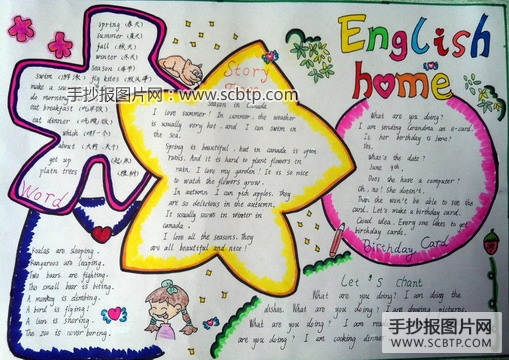 English
home
spring (春天)
summer (夏天)
fall (秋天)
winter (冬天)
season (季节)
swim (游泳) fly kites (放风筝)
make a
do morning
eat breakfast (吃早饭)
eat dinner (吃晚饭)
which (哪一个)
about (大约)
get up
plant trees
Word
Story
Season in Canada
I love summer! In summer, the weather
is usually very hot. and I can swim in
the sea.
Spring is beautiful, but in canada is upon
rains. And it is hard to plant flowers in
rain. I love my garden! It is so nice
to watch the flowers grow.
In autumn I can pick apples. They
are so delicious in the autumn.
It usually snows in winter in
canada.
I love all the seasons. They
are all beautiful and nice!
What are you doing?
I am sending Grandma an e-card.
Is her birthday is June?
Yes.
What's the date?
June 9th.
Does she have a computer?
Oh, no! She doesn't.
Then she won't be able to see the
card. Let's make a birthday card.
Good idea. Every one likes to get
birthday cards.
Birthday Card
Koalas are sleeping.
Kangaroos are leaping.
Two bears are fighting.
The small bear is biting.
A monkey is climbing.
A bird is flying!
A lion is
The zoo is never boring.
Let's Chant
What are you doing? I am doing the
dishes. What are you doing? I am drawing pictures.
What are you doing? I am
What are you doing? I am cooking dinner
手抄报图片网:www.scbtp.com
手抄报图片网
WWW.SCBTP.COM